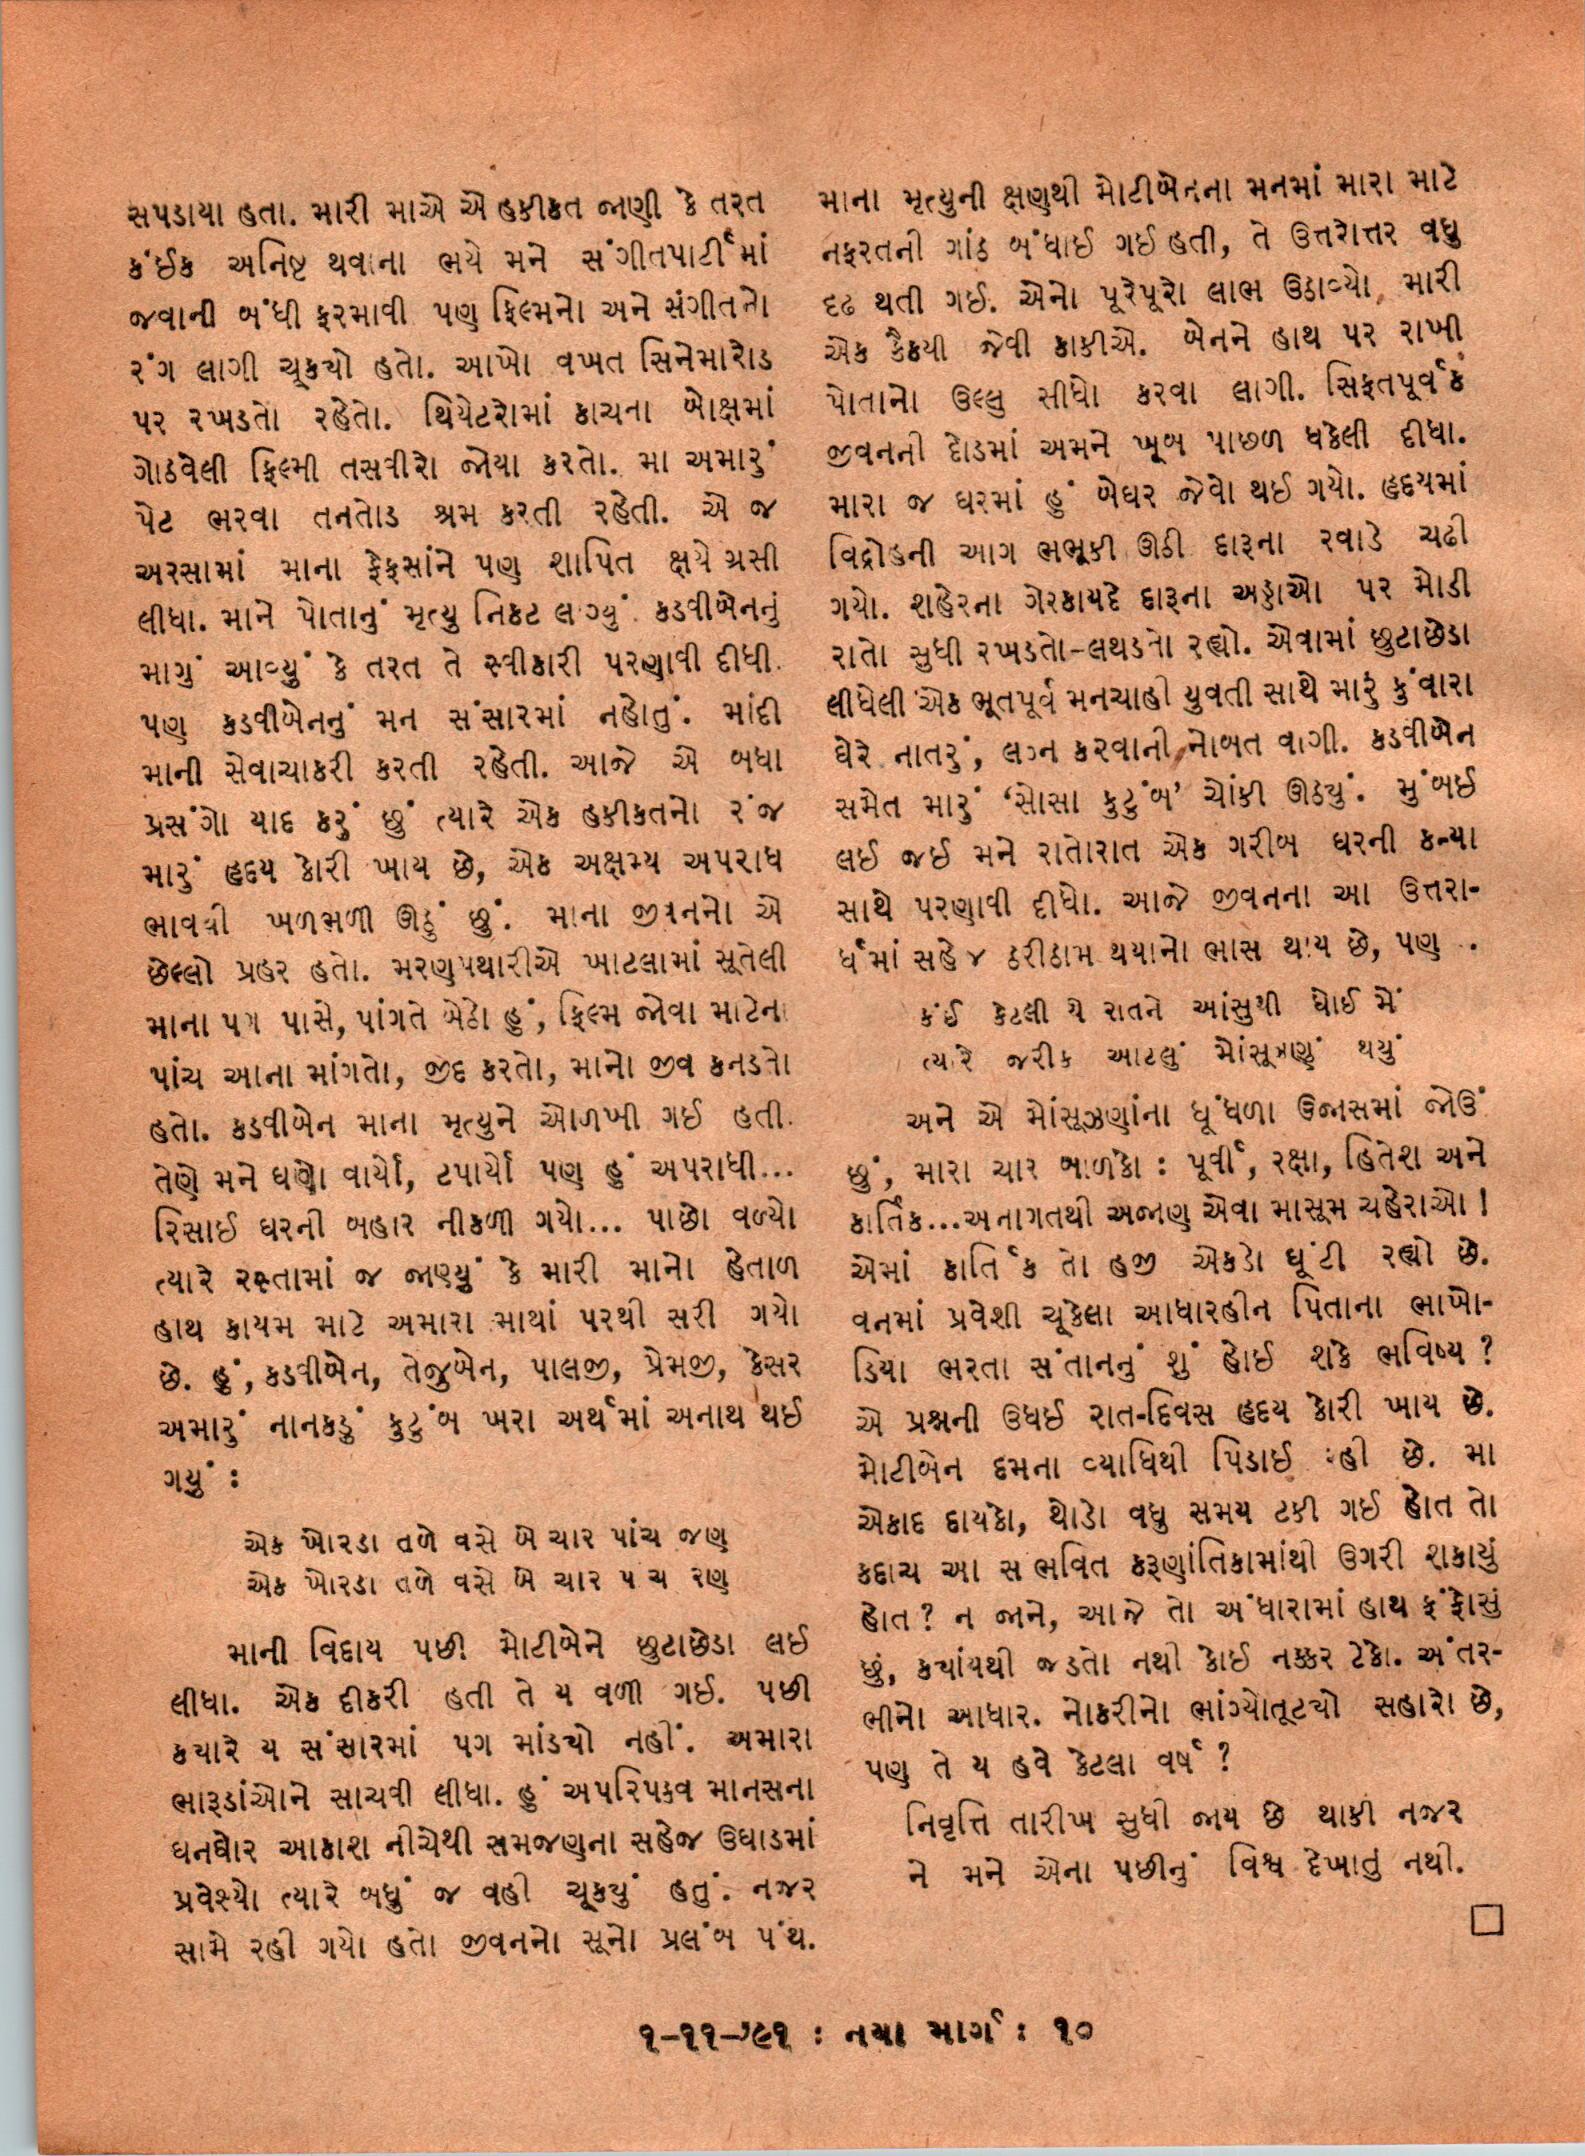 સપડાયા હતા. મારી માએ એ હકીકત જાણી કે તરત
કંઈક અનિષ્ટ થવાના ભયે મને સંગીતપાર્ટીમાં
જવાની બંધી ફરમાવી પણ ફિલ્મનો અને સંગીતનો
રંગ લાગી ચૂકયો હતો. આખો વખત સિનેમારોડ
પર રખડતો રહેતો. થિયેટરોમાં કાચના બોક્ષમાં
ગોઠવેલી ફિલ્મી તસવીરો જોયા કરતો. મા અમારું
પેટ ભરવા તનતોડ શ્રમ કરતી રહેતી. એ જ
અરસામાં માના ફેફસાંને પણ શાપિત ક્ષયે ગ્રસી
લીધા. માને પોતાનું મૃત્યુ નિકટ લાગ્યું. કડવીબેનનું
માગું આવ્યું કે તરત તે સ્વીકારી પરણાવી દીધી.
પણ કડવીબેનનું મન સંસારમાં નહોતું. માંદી
માની સેવાચાકરી કરતી રહેતી. આજે એ બધા
પ્રસંગો યાદ કરું છું ત્યારે એક હકીકતનો રંજ
મારું હૃદય કોરી ખાય છે, એક અક્ષમ્ય અપરાધ
ભાવથી ખળભળી ઊઠું છું. માના જીવનનો એ
છેલ્લો પ્રહર હતો. મરણપથારીએ ખાટલામાં સૂતેલી
માના પગ પાસે, પાંગતે બેઠો હું, ફિલ્મ જોવા માટેના
પાંચ આના માંગતો, જીદ કરતો, માનો જીવ કનડતો
હતો. કડવીબેન માના મૃત્યુને ઓળખી ગઈ હતી.
તેણે મને ઘણો વાર્યો, ટપાર્યો પણ હું અપરાધી...
રિસાઈ ઘરની બહાર નીકળી ગયો... પાછો વળ્યો
ત્યારે રસ્તામાં જ જાણ્યું કે મારી માનો હેતાળ
હાથ કાયમ માટે અમારા માથાં પરથી સરી ગયો
છે. હું, કડવીબેન, તેજુબેન, પાલજી, પ્રેમજી, કેસર
અમારું નાનકડું કુટુંબ ખરા અર્થમાં અનાથ થઈ
ગયું :
એક ઓરડા તળે વસે બે ચાર પાંચ જણ
એક ઓરડા તળે વસે બે ચાર પ ચ રણ
માની વિદાય પછી મોટીબેને છુટાછેડા લઈ
લીધા. એક દીકરી હતી તે ય વળી ગઈ. પછી
કયારે ય સંસારમાં પગ માંડયો નહીં. અમારા
ભારૂડાંઓને સાચવી લીધા. હું અપરિપકવ માનસના
ઘનઘોર આકાશ નીચેથી સમજણના સહેજ ઉઘાડમાં
પ્રવેશ્યો ત્યારે બધું જ વહી ચૂકયું હતું. નજર
સામે રહી ગયો હતો જીવનનો સૂનો પ્રલંબ પંથ.
માના મૃત્યુની ક્ષણથી મોટીબેનના મનમાં મારા માટે
નફરતની ગાંઠ બંધાઈ ગઈ હતી, તે ઉત્તરોત્તર વધુ
દૃઢ થતી ગઈ. એનો પૂરેપૂરો લાભ ઉઠાવ્યો મારી
એક કૈકયી જેવી કાકીએ. બેનને હાથ પર રાખી
પોતાનો ઉલ્લુ સીધો કરવા લાગી. સિફતપૂર્વક
જીવનની દોડમાં અમને ખૂબ પાછળ ધકેલી દીધા.
મારા જ ઘરમાં હું બેઘર જેવો થઈ ગયો. હૃદયમાં
વિદ્રોહની આગ ભભૂકી ઊઠી દારૂના રવાડે ચઢી
ગયો. શહેરના ગેરકાયદે દારૂના અડ્ડાઓ પર મોડી
રાતો સુધી રખડતો-લથડતો રહ્યો. એવામાં છુટાછેડા
લીધેલી એક ભૂતપૂર્વ મનચાહી યુવતી સાથે મારું કુંવારા
ઘેરે નાતરું, લગ્ન કરવાની નોબત વાગી. કડવીબેન
સમેત મારું ‘સોસા કુટુંબ’ ચોંકી ઊઠયું. મુંબઈ
લઈ જઈ મને રાતોરાત એક ગરીબ ઘરની કન્યા
સાથે પરણાવી દીધો. આજે જીવનના આ ઉત્તરા-
ર્ધમાં સહેજ ઠરીઠામ થયાનો ભાસ થાય છે, પણ .
કંઈ કેટલી યે રાતને આંસુથી ધોઈ મેં
ત્યારે જરીક આટલું મોંસૂઝણું થયું
અને એ મોંસૂઝણાંના ધૂંધળા ઉજાસમાં જોઉં
છું, મારા ચાર બાળકો : પૂર્વી, રક્ષા, હિતેશ અને
કાર્તિક...અનાગતથી અજાણ એવા માસૂમ ચહેરાઓ !
એમાં કાર્તિક તો હજી એકડો ઘૂંટી રહ્યો છે.
વનમાં પ્રવેશી ચૂકેલા આધારહીન પિતાના ભાખો-
ડિયા ભરતા સંતાનનું શું હોઈ શકે ભવિષ્ય ?
એ પ્રશ્નની ઉધઈ રાત-દિવસ હૃદય કોરી ખાય છે.
મોટીબેન દમના વ્યાધિથી પિડાઈ રહી છે. મા
એકાદ દાયકો, થોડો વધુ સમય ટકી ગઈ હોત તો
કદાચ આ સંભવિત કરૂણાંતિકામાંથી ઉગરી શકાયું
હોત ? ન જાને, આજે તો અંધારામાં હાથ ફંફોસું
છું, કયાંયથી જડતો નથી કોઈ નક્કર ટેકો. અંતર-
ભીનો આધાર. નોકરીનો ભાંગ્યોતૂટયો સહારો છે,
પણ તે ય હવે કેટલા વર્ષ ?
નિવૃત્તિ તારીખ સુધી જાય છે થાકી નજર
ને મને એના પછીનું વિશ્વ દેખાતું નથી.
૧-૧૧-'૯૧ : નયા માર્ગ : ૧૦